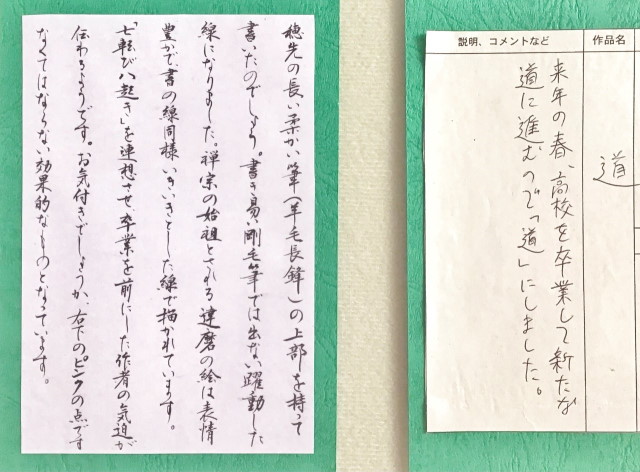 穂先の長い柔かい筆(羊毛長鋒)の上部を持って
書いたのでしょう。書き易い剛毛筆では出ない躍動した
線になりました。禅宗の始祖とされる達磨の絵は表情
豊かで、書の線同様いきいきとした線で描かれています。
「七転び八起き」を連想させ、卒業を前にした作者の気迫が
伝わるようです。お気付きでしょうか、右下のピンクの点です
なくてはならない効果的なものとなっています。
作品名
道
説明、コメントなど
来年の春、高校を卒業して新たな
道に進むので「道」にしました。